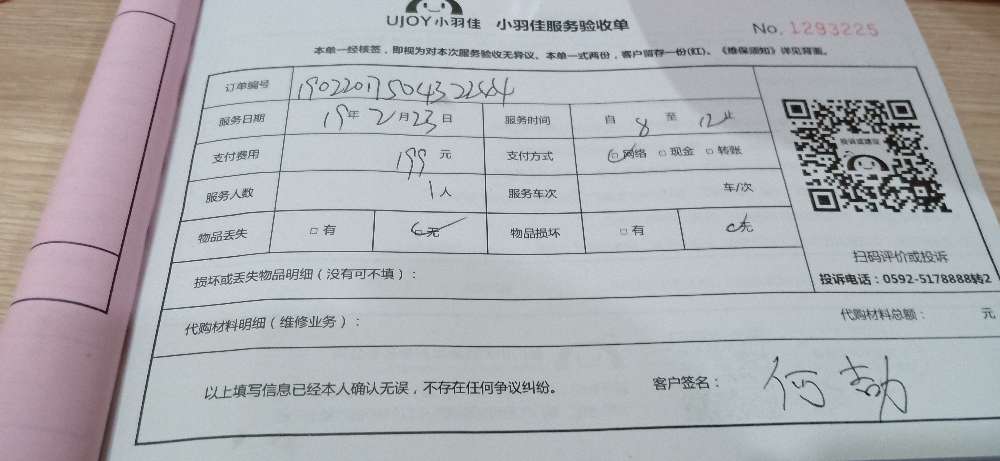 UJOY小羽佳 小羽佳服务验收单
No. 1293225
本单一经核签，即视为对本次服务验收无异议。本单一式两份，客户留存一份(红)。《维保须知》详见背面。
订单编号 1902201750432244
服务日期 19年 2月23日 服务时间 自 8 至 12止
支付费用 199 元 支付方式 □网络 □现金 □转账
服务人数 1人 服务车次 车/次
物品丢失 □有 无 物品损坏 □有 无
投诉或建议
扫码评价或投诉
投诉电话：0592-5178888转2
损坏或丢失物品明细（没有可不填）：
代购材料明细（维修业务）： 代购材料总额： 元
以上填写信息已经本人确认无误，不存在任何争议纠纷。 客户签名： 何劼